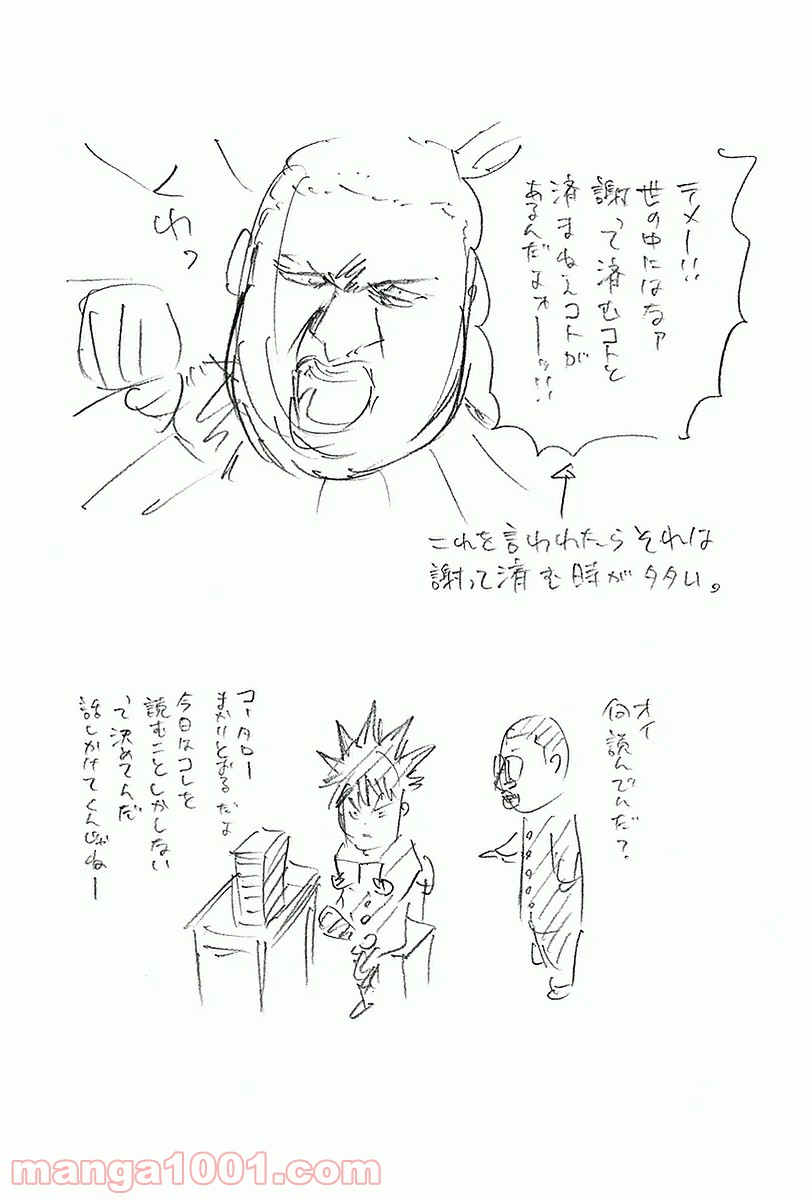 テメー!!
世の中にはなァ
謝って済むコトと
済まねえコトが
あるんだよォーッ!!
くわっ
これを言われたらそれは
謝って済む時が多い。
オイ
何読んでんだ?
コータロー
まかりとおるだよ
今日はコレを
読むことしかしない
って決めてんだ
話しかけてくんじゃねー
manga1001.com